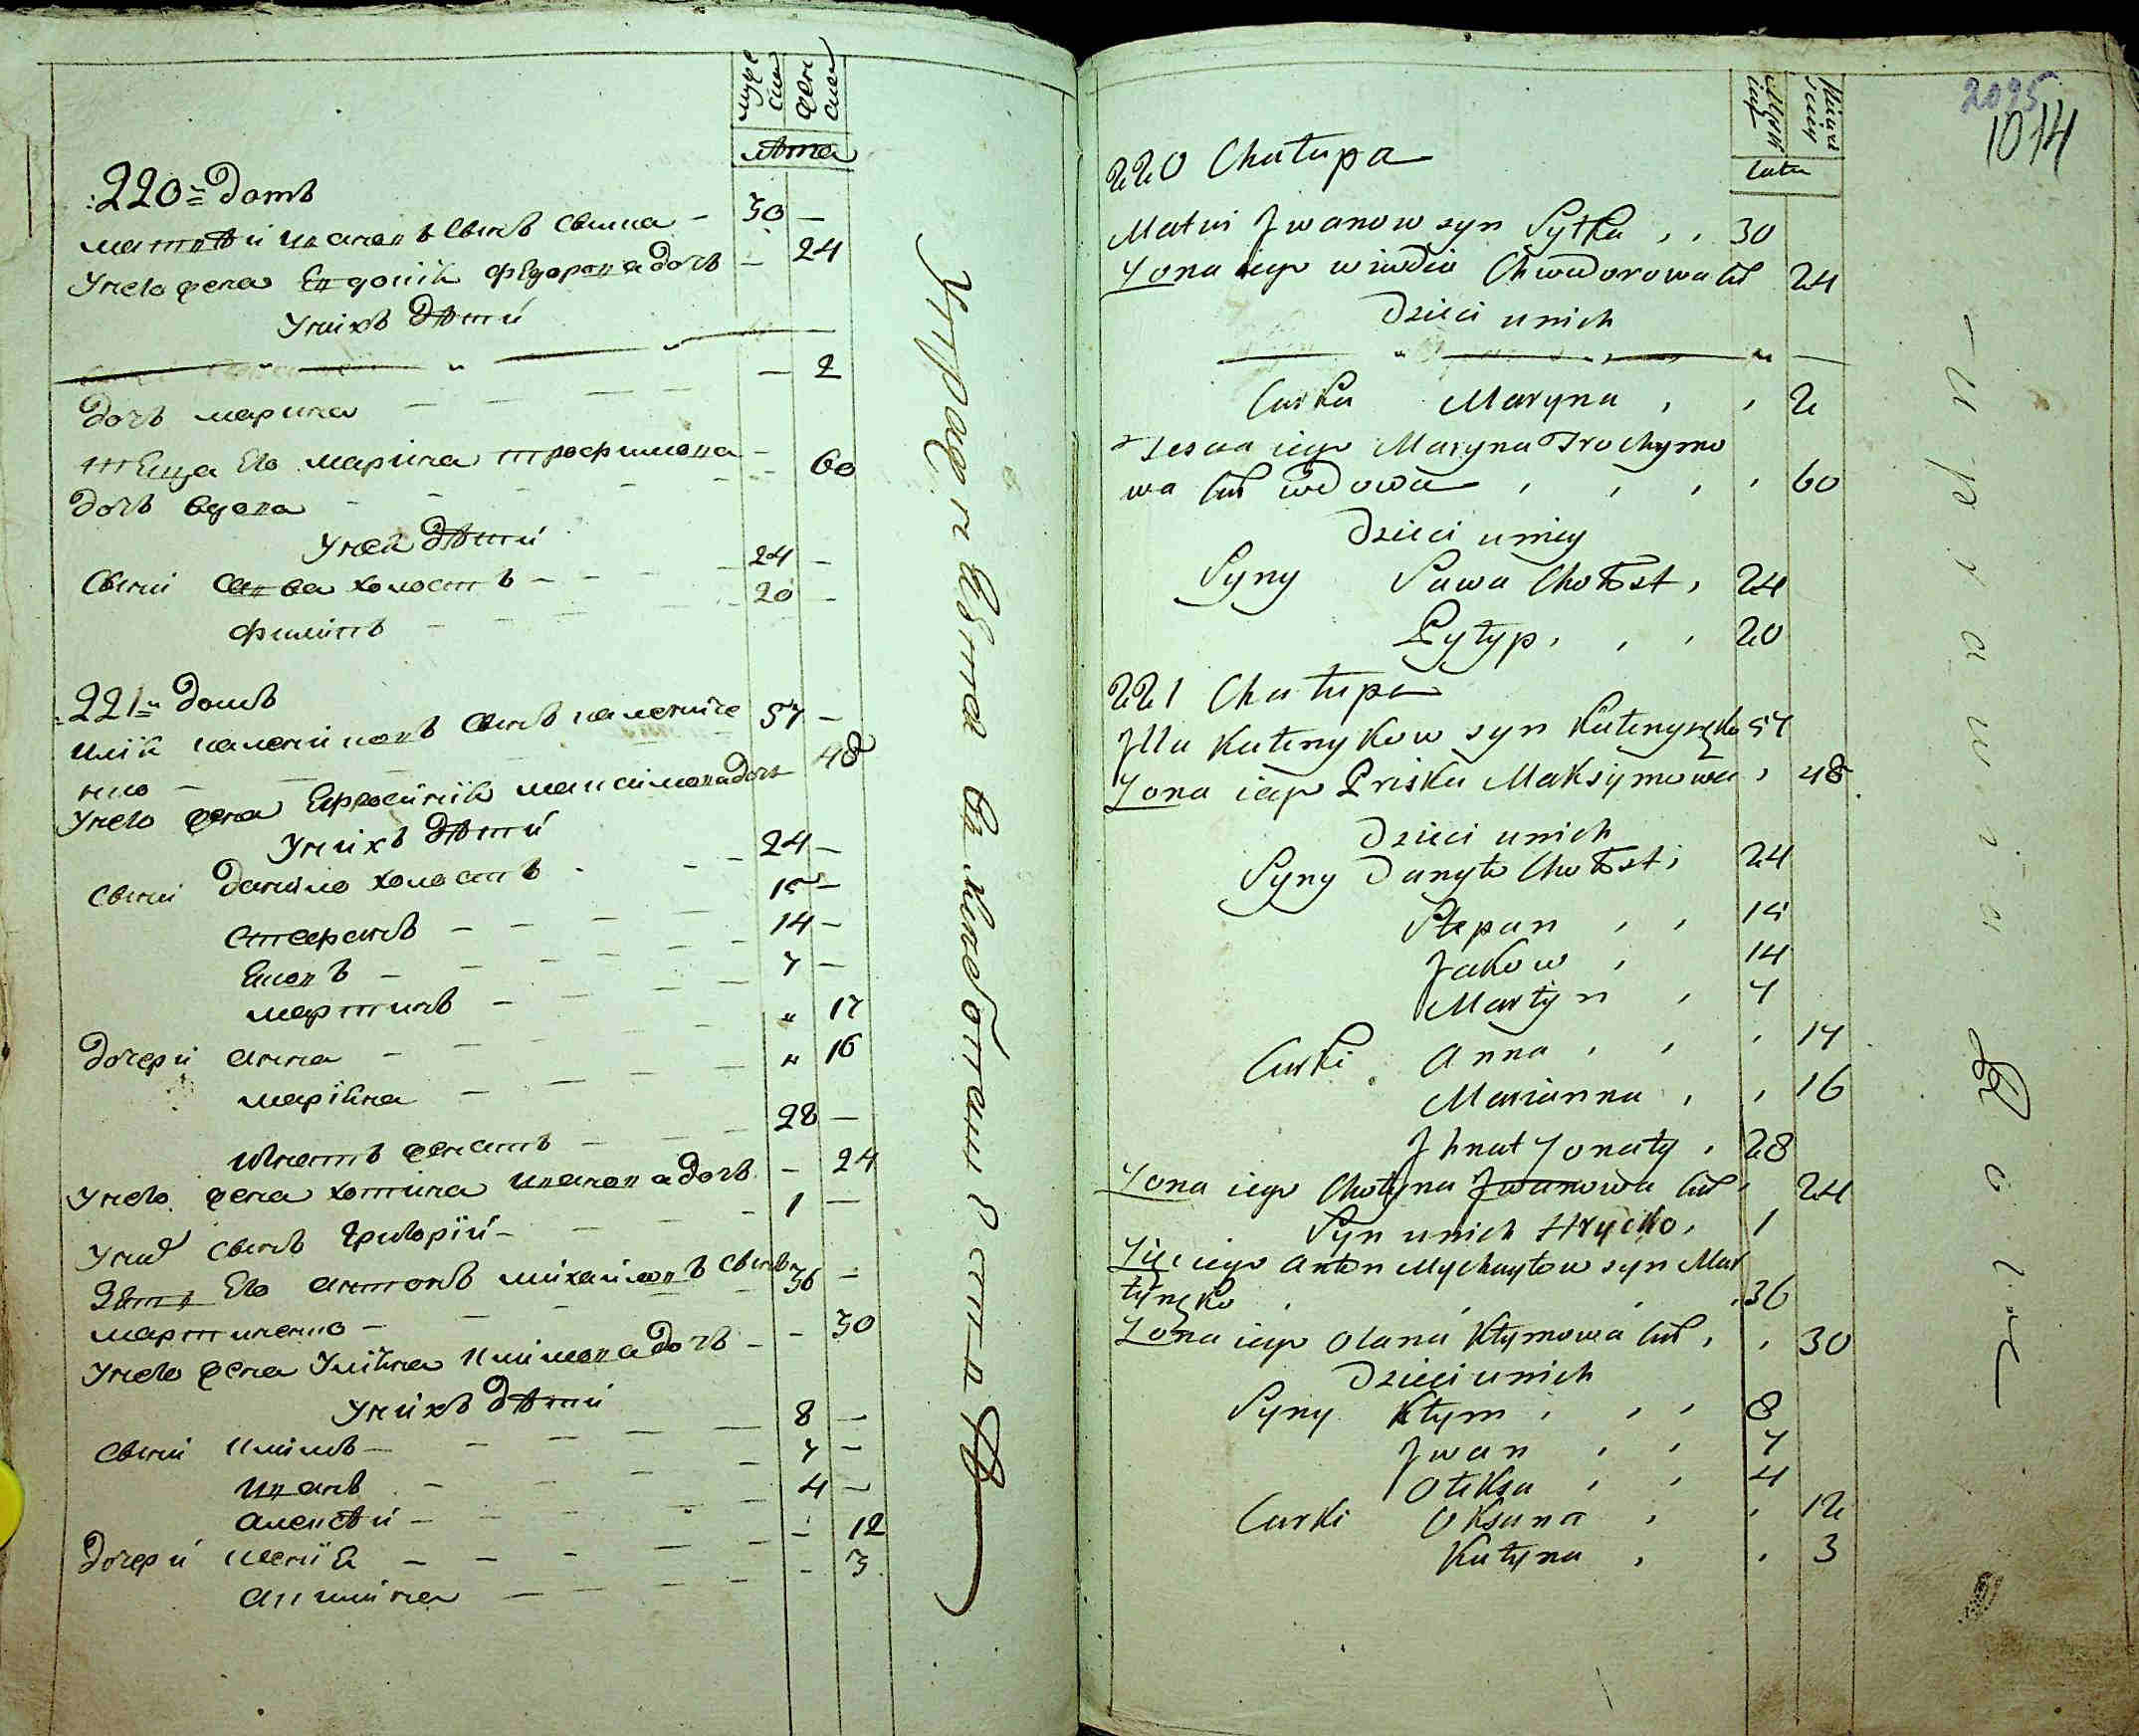 муже
ска
жен
ска
лѣта
220 = домъ
матвѣй ивановъ сынъ свитка 30
унего жена Евдокія федорова дочь 24
уних дѣти
дочь марина 2
теща его марина трофимова
дочь вдова 60
уней дѣти
сыни савва холостъ 24
филипъ 20
221 = домъ
илія калениковъ сынъ калениче
нко 57
унего жена Ефросинія максимова дочь 48
унихъ дѣти
сыни данило холостъ 24
стефанъ 15
яковъ 14
мартинъ 7
дочери анна 17
маріяна 16
игнатъ женатъ 28
унего жена хотина иванова дочь 24
уних сынъ григорій 1
зять его антонъ михайловъ сынъ
мартиненко 36
унего жена уліяна климова дочь 30
унихъ дѣти
сыни климъ 8
иванъ 7
алексѣй 4
дочери ксенія 12
акилина 3
2095
1014
Męsk
ich
lata
220 Chałupa
Matwi Jwanow syn Sytka 30
Żona iego wiwdia Chwedorowa Cur 24
Dzieci u nich
Curka Maryna 2
Tescza iego Maryna Trochymo
wa Cur wdowa 60
Dzieci u niey
Syny Sawa Chołost 24
Pyłyp 20
221 Chałupa
Jlla Kałenykow syn Kałenyczęko 57
Żona iego Priska Maksymowa 48
Dzieci u nich
Syny Danyło Chołost 24
Stepan 15
Jakow 14
Martyn 7
Curki Anna 17
Marianna 16
Jhnat Żonaty 28
Żona iego Chotyna Jwanowa Cur 24
Syn u nich Hrycko 1
Zięć iego Anton Mychayłow syn Mar
tynęko 36
Żona iego Olana Kłymowa Cur 30
Dzieci u nich
Syny Kłym 8
Jwan 7
Ołeksa 4
Curki Oksana 12
Katyna 3